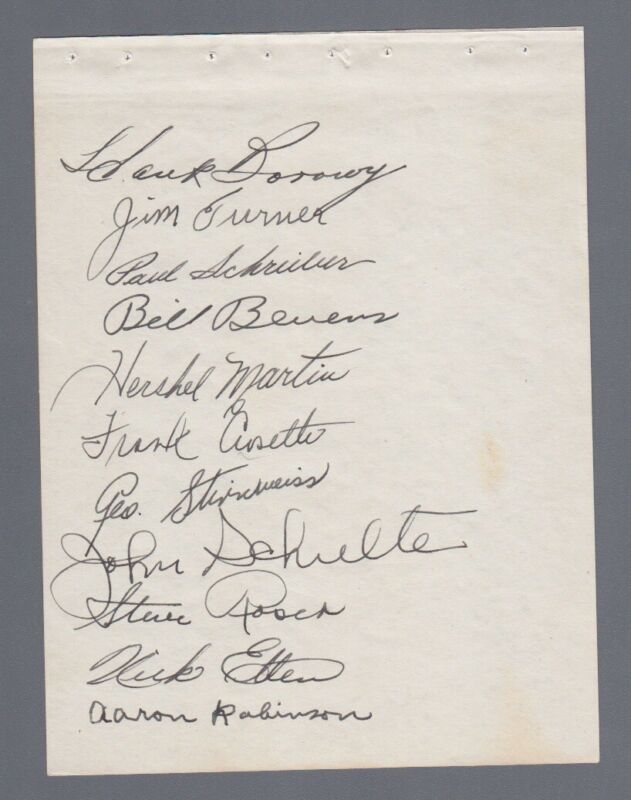 Hank Borowy
Jim Turner
Paul Schreiber
Bill Bevens
Hershel Martin
Frank Crosetti
Geo. Stirnweiss
John Schulte
Steve Roser
Nick Etten
Aaron Robinson